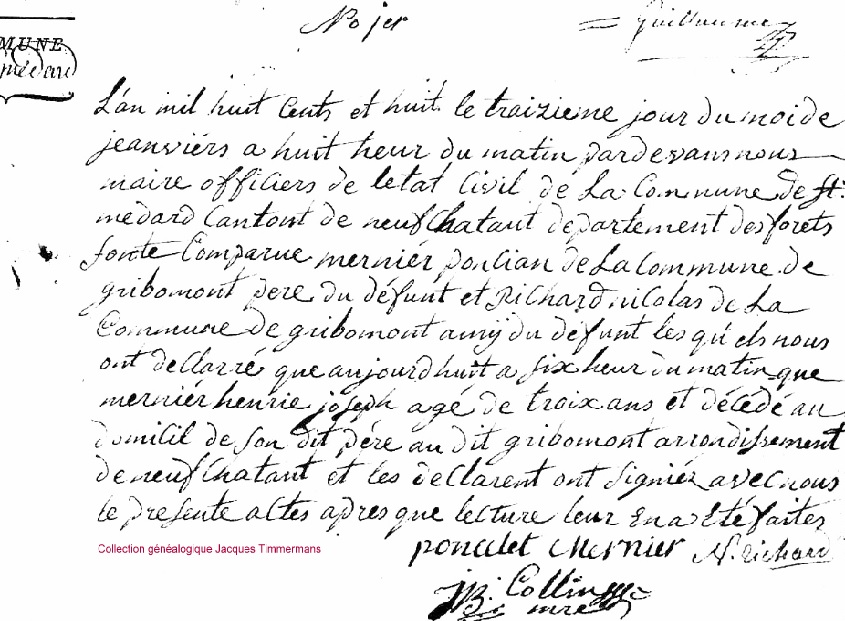 Nojer
Guillaume
MUNE
médard
L'an mil huit Cents et huit le traizieme jour du moi de
jeanviérs a huit heur du matin pardevans nous
maire officiers de létat Civil de La Commune de St.
médard Cantont de neufChatant departement des forets
sonte Comparue merniér poncian de La Commune de
gribomont pere du défunt et Richard nicolas de La
Commune de gribomont amy du défunt les qu'els nous
ont declarré que aujourd huit a six heur du matin que
merniér henrie joseph agé de troix ans et décédé au
domicil de son dit pére au dit gribomont arrondissement
de neufChatant et les declarent ont signiéz avec nous
le presente actes apres que lecture leur en a eté faites
poncelet Mernier N. richard
JB: Collin
mre
Collection généalogique Jacques Timmermans